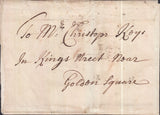 To Mr. Christopr Kays
In Kings Street Near
Golden Square